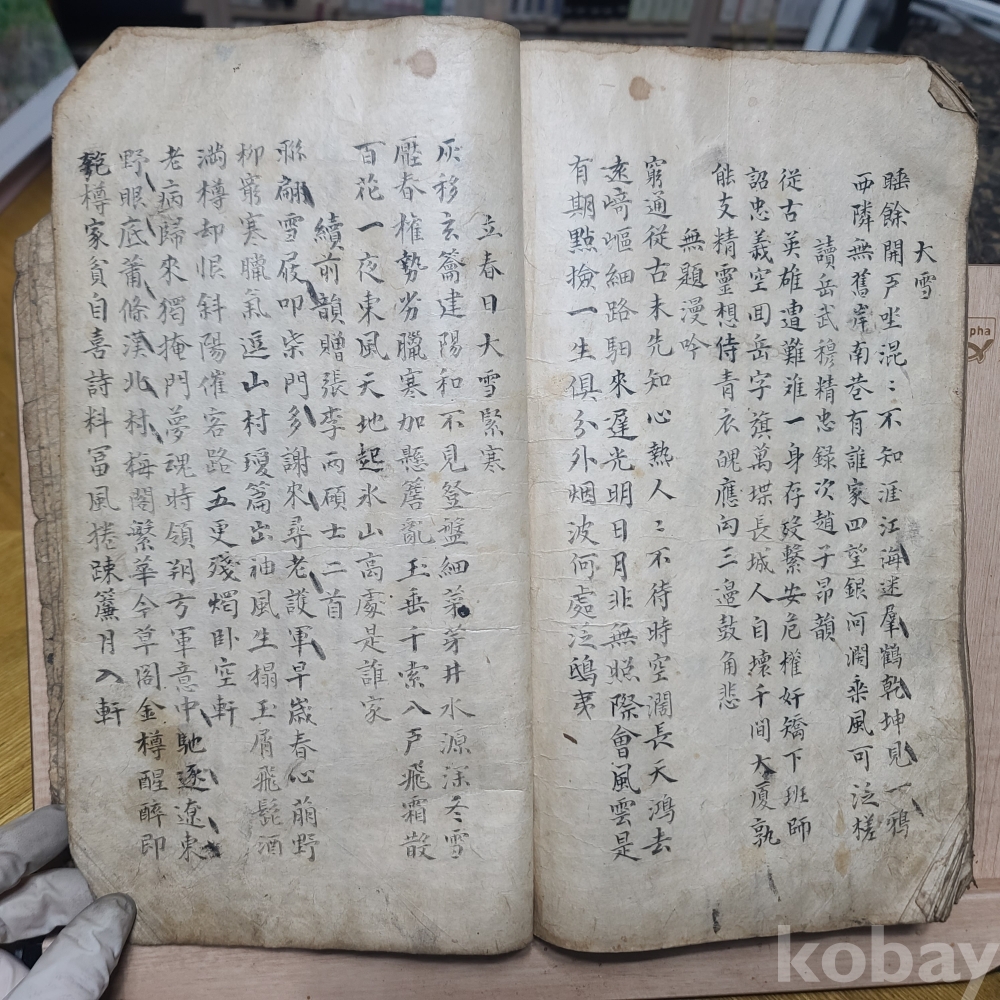 大雪
睡餘開戶坐混〻不知涯江海迷羣鶴乾坤見一鴉
西隣無舊岸南巷有誰家四望銀河濶乘風可泛槎
讀岳武穆精忠錄次趙子昂韻
從古英雄遭難难一身存歿繫安危權奸矯下班師
詔忠義空囬岳字旗萬堞長城人自壞千間大廈孰
能支精靈想侍青衣魄應向三邊鼓角悲
無題漫吟
窮通從古未先知心熱人〻不待時空濶長天鴻去
遠崎嶇細路馹來遲光明日月非無照際會風雲是
有期點撿一生俱分外烟波何處泛鴟夷
立春日大雪緊寒
灰移玄籥建陽和不見登盤細菜芽井水源深冬雪
壓春權勢劣臘寒加懸簷亂玉垂千索入戶飛霜散
百花一夜東風天地起氷山高處是誰家
續前韻贈張李兩碩士二首
聯翩雪屐叩柴門多謝來尋老護軍早歲春心萠野
柳窮寒臘氣逗山村瓊篇出神風生榻玉屑飛髭酒
滿樽却恨斜陽催客路五更殘燭卧空軒
老病歸來獨掩門夢魂時領朔方軍意中馳逐遼東
野眼底蕭條漢北村梅閣繁華今草閣金樽醒醉即
匏樽家貧自喜詩料富風捲踈簾月入軒
kobay
pha